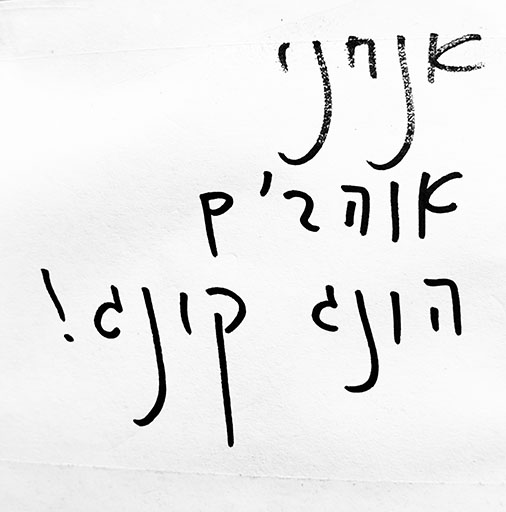 אנחנו
אוהבים
הונג קונג!